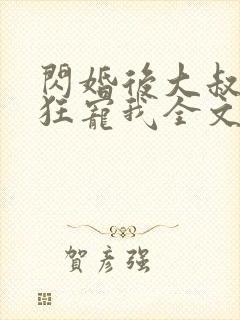 閃婚後大叔
狂寵我全文
賀彥強